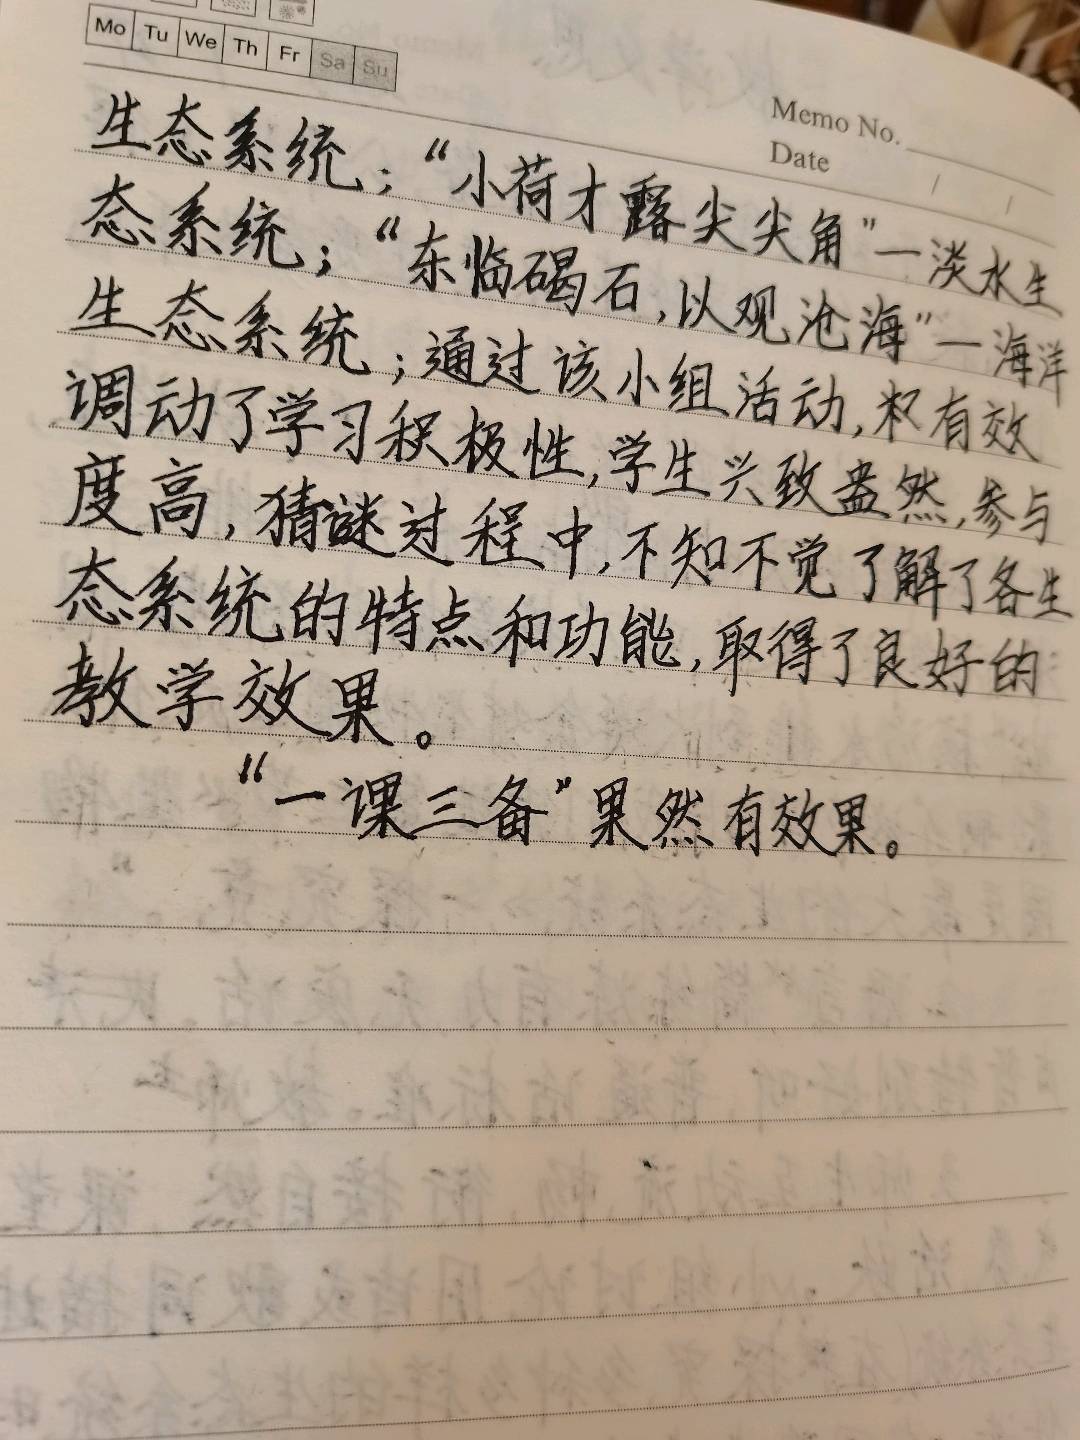 Mo Tu We Th Fr Sa Su
Memo No.
Date / /
生态系统；“小荷才露尖尖角”—淡水生
态系统；“东临碣石,以观沧海”—海洋
生态系统；通过该小组活动,极有效
调动了学习积极性,学生兴致盎然,参与
度高,猜谜过程中,不知不觉了解了各生
态系统的特点和功能,取得了良好的
教学效果。
“一课三备”果然有效果。